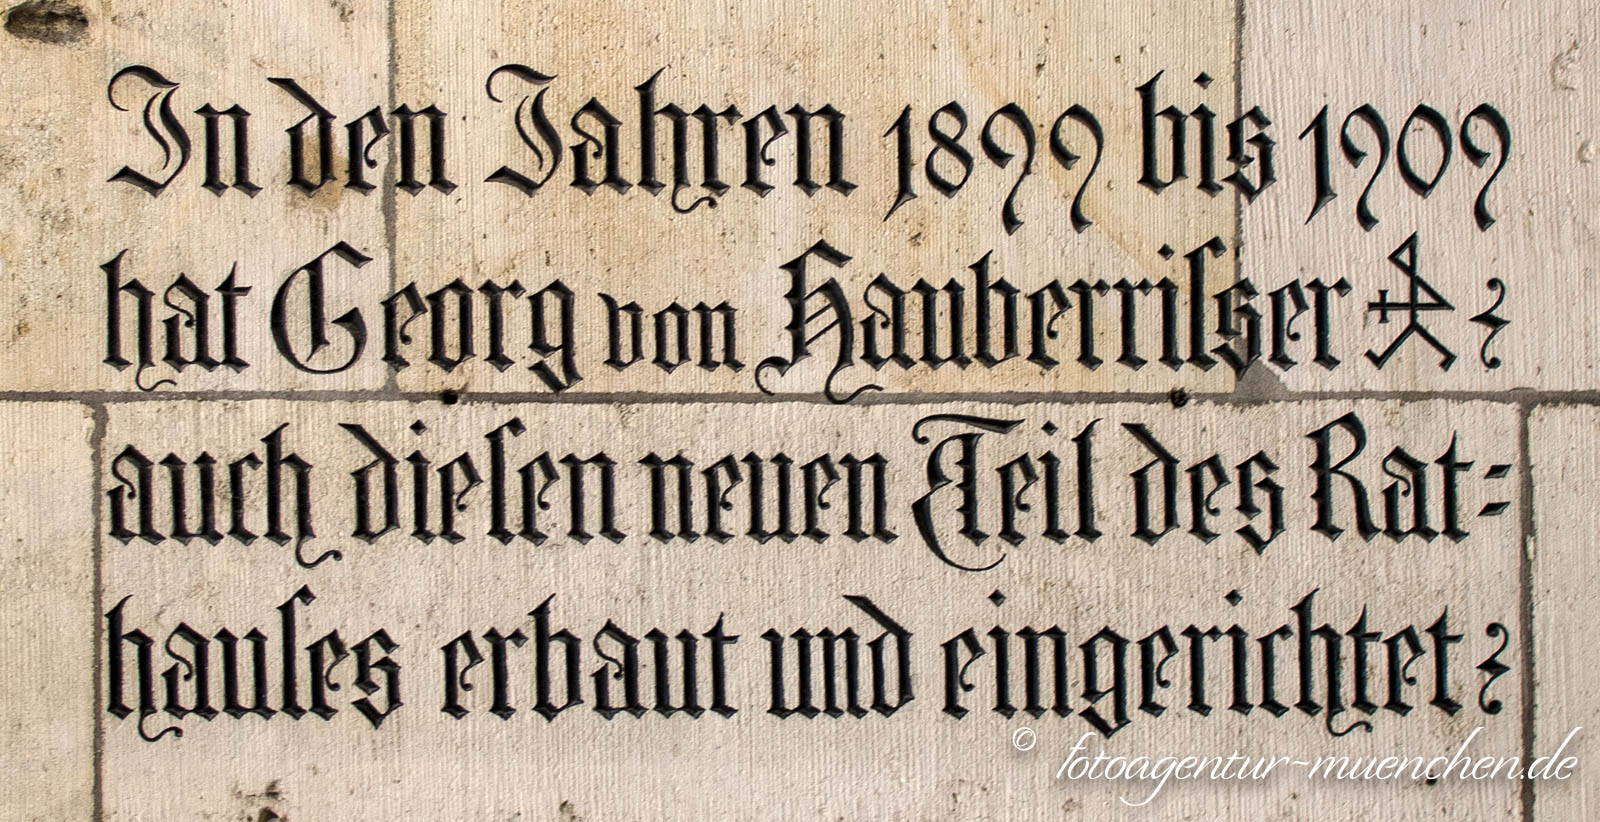 In den Jahren 1899 bis 1909
hat Georg von Hauberriſser
auch dieſen neuen Teil des Rat=
hauſes erbaut und eingerichtet
© fotoagentur-muenchen.de